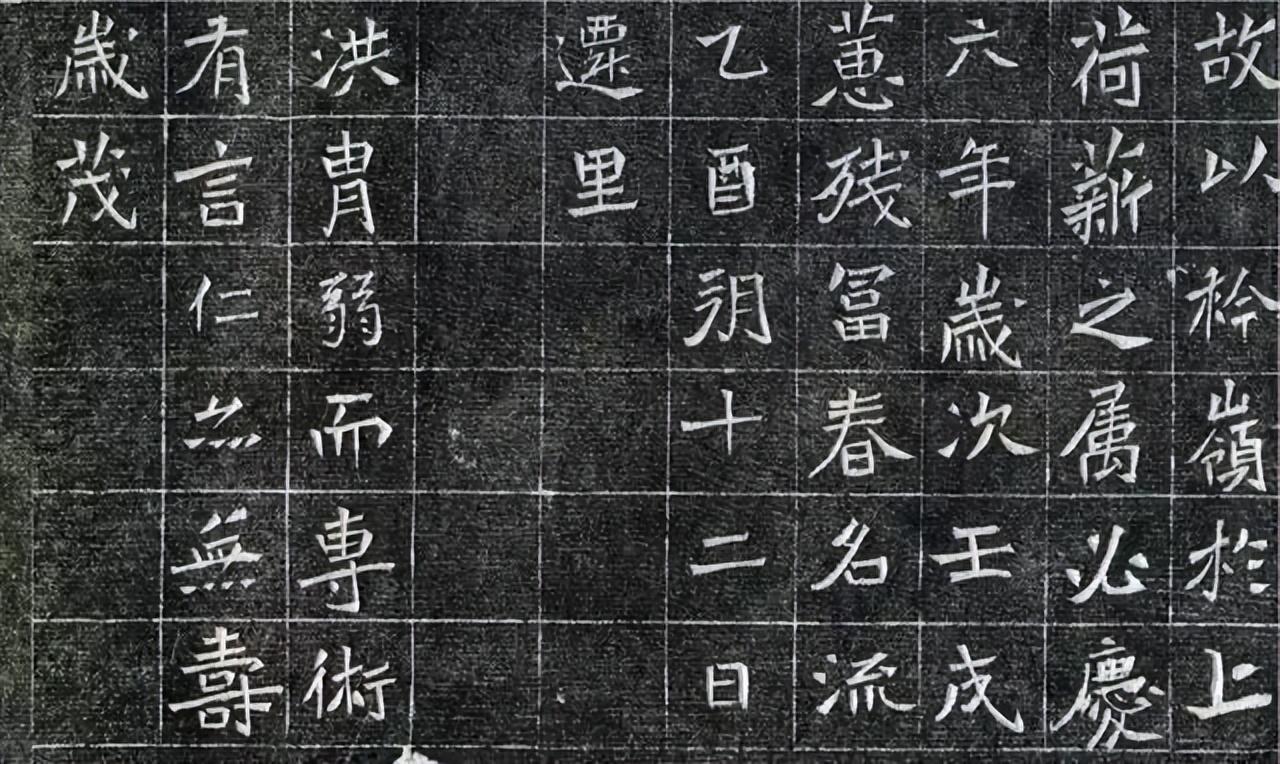 故以衿嶺於上
荷薪之属必慶
六年歲次壬戌
蕙殘冨春名流
乙酉朔十二日
遷里
洪胄弱而專術
有言仁無壽
歲茂